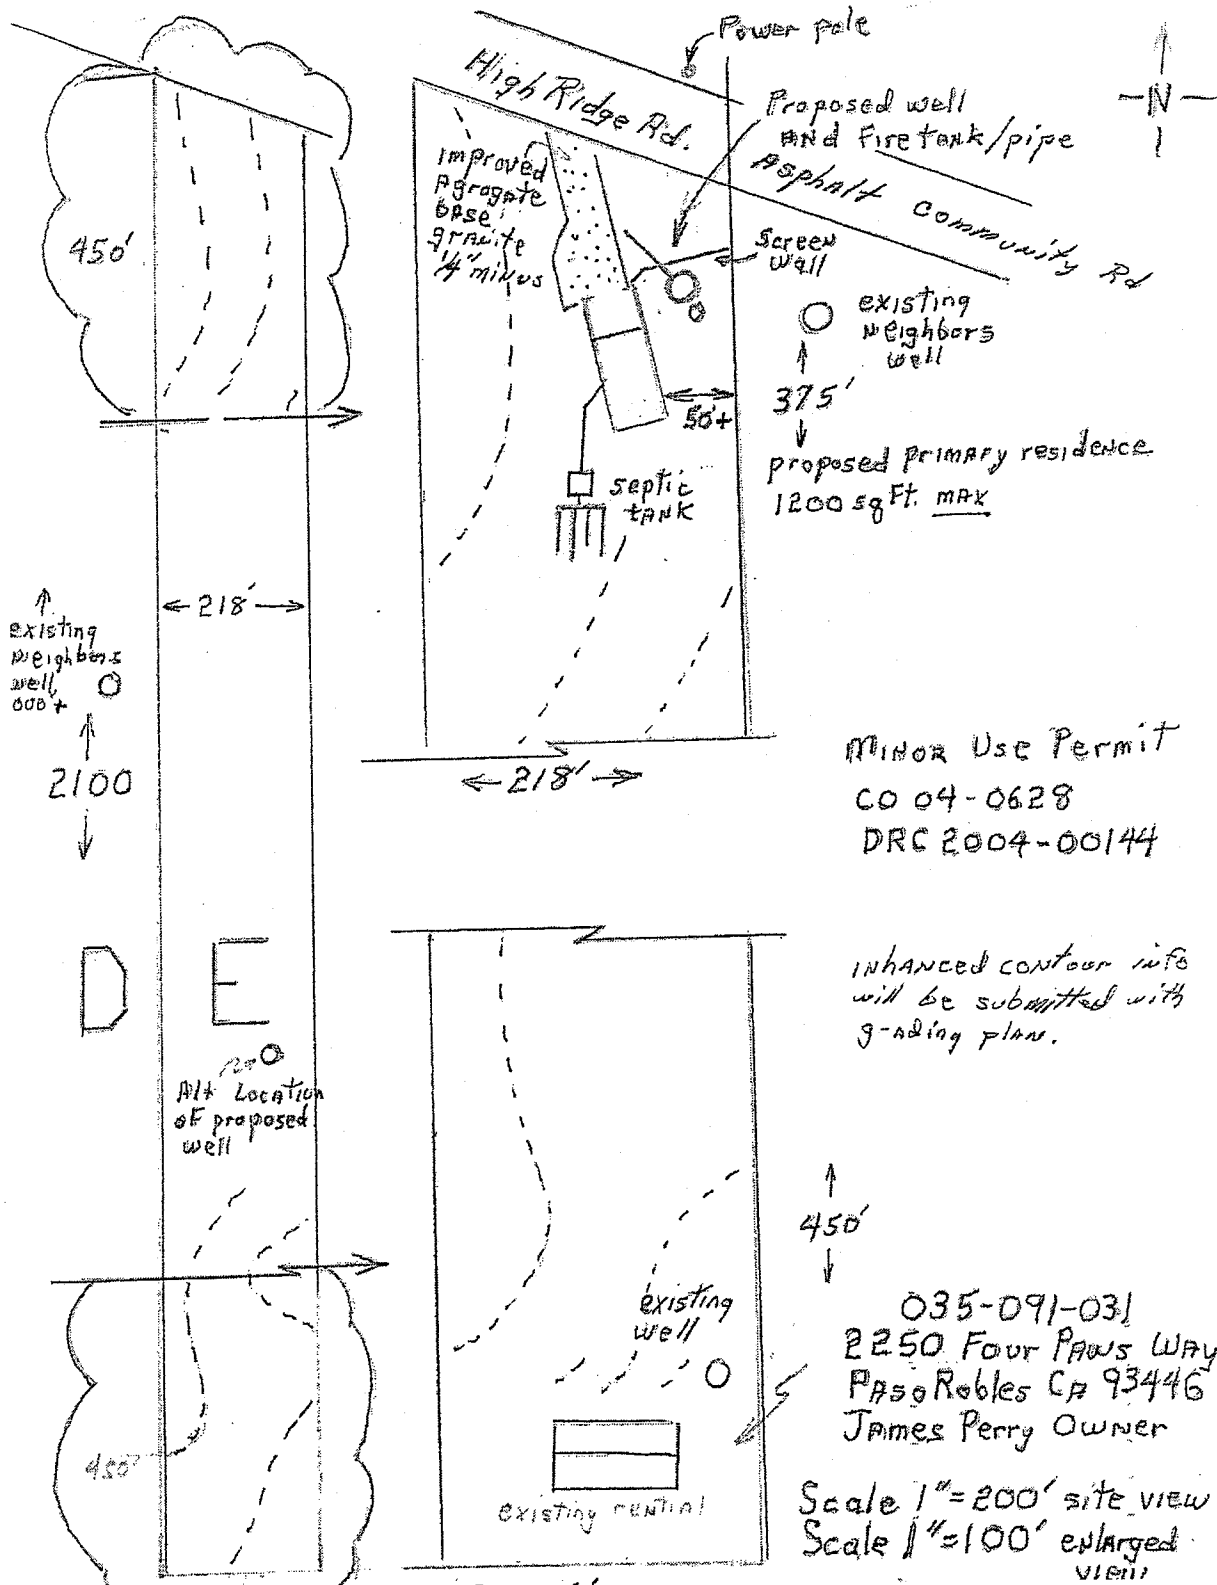 Power pole
High Ridge Rd.
Proposed well
AND Fire tank/pipe
Asphalt Community Rd
N
improved
Agragate
base
granite
1/4" minus
Screen
Wall
450'
existing
Neighbors
well
375'
50'+
proposed primary residence
1200 sq Ft. MAX
septic
tANK
218'
existing
Neighbors
well
000+
2100
218'
Minor Use Permit
CO 04-0628
DRC 2004-00144
D E
INhANced contour info
will be submitted with
g-ading plan.
Alt Location
of proposed
well
450'
existing
well
035-091-031
2250 Four Paws Way
Paso Robles CA 93446
James Perry Owner
450'
existing rential
Scale 1"=200' site view
Scale 1"=100' enlarged
view